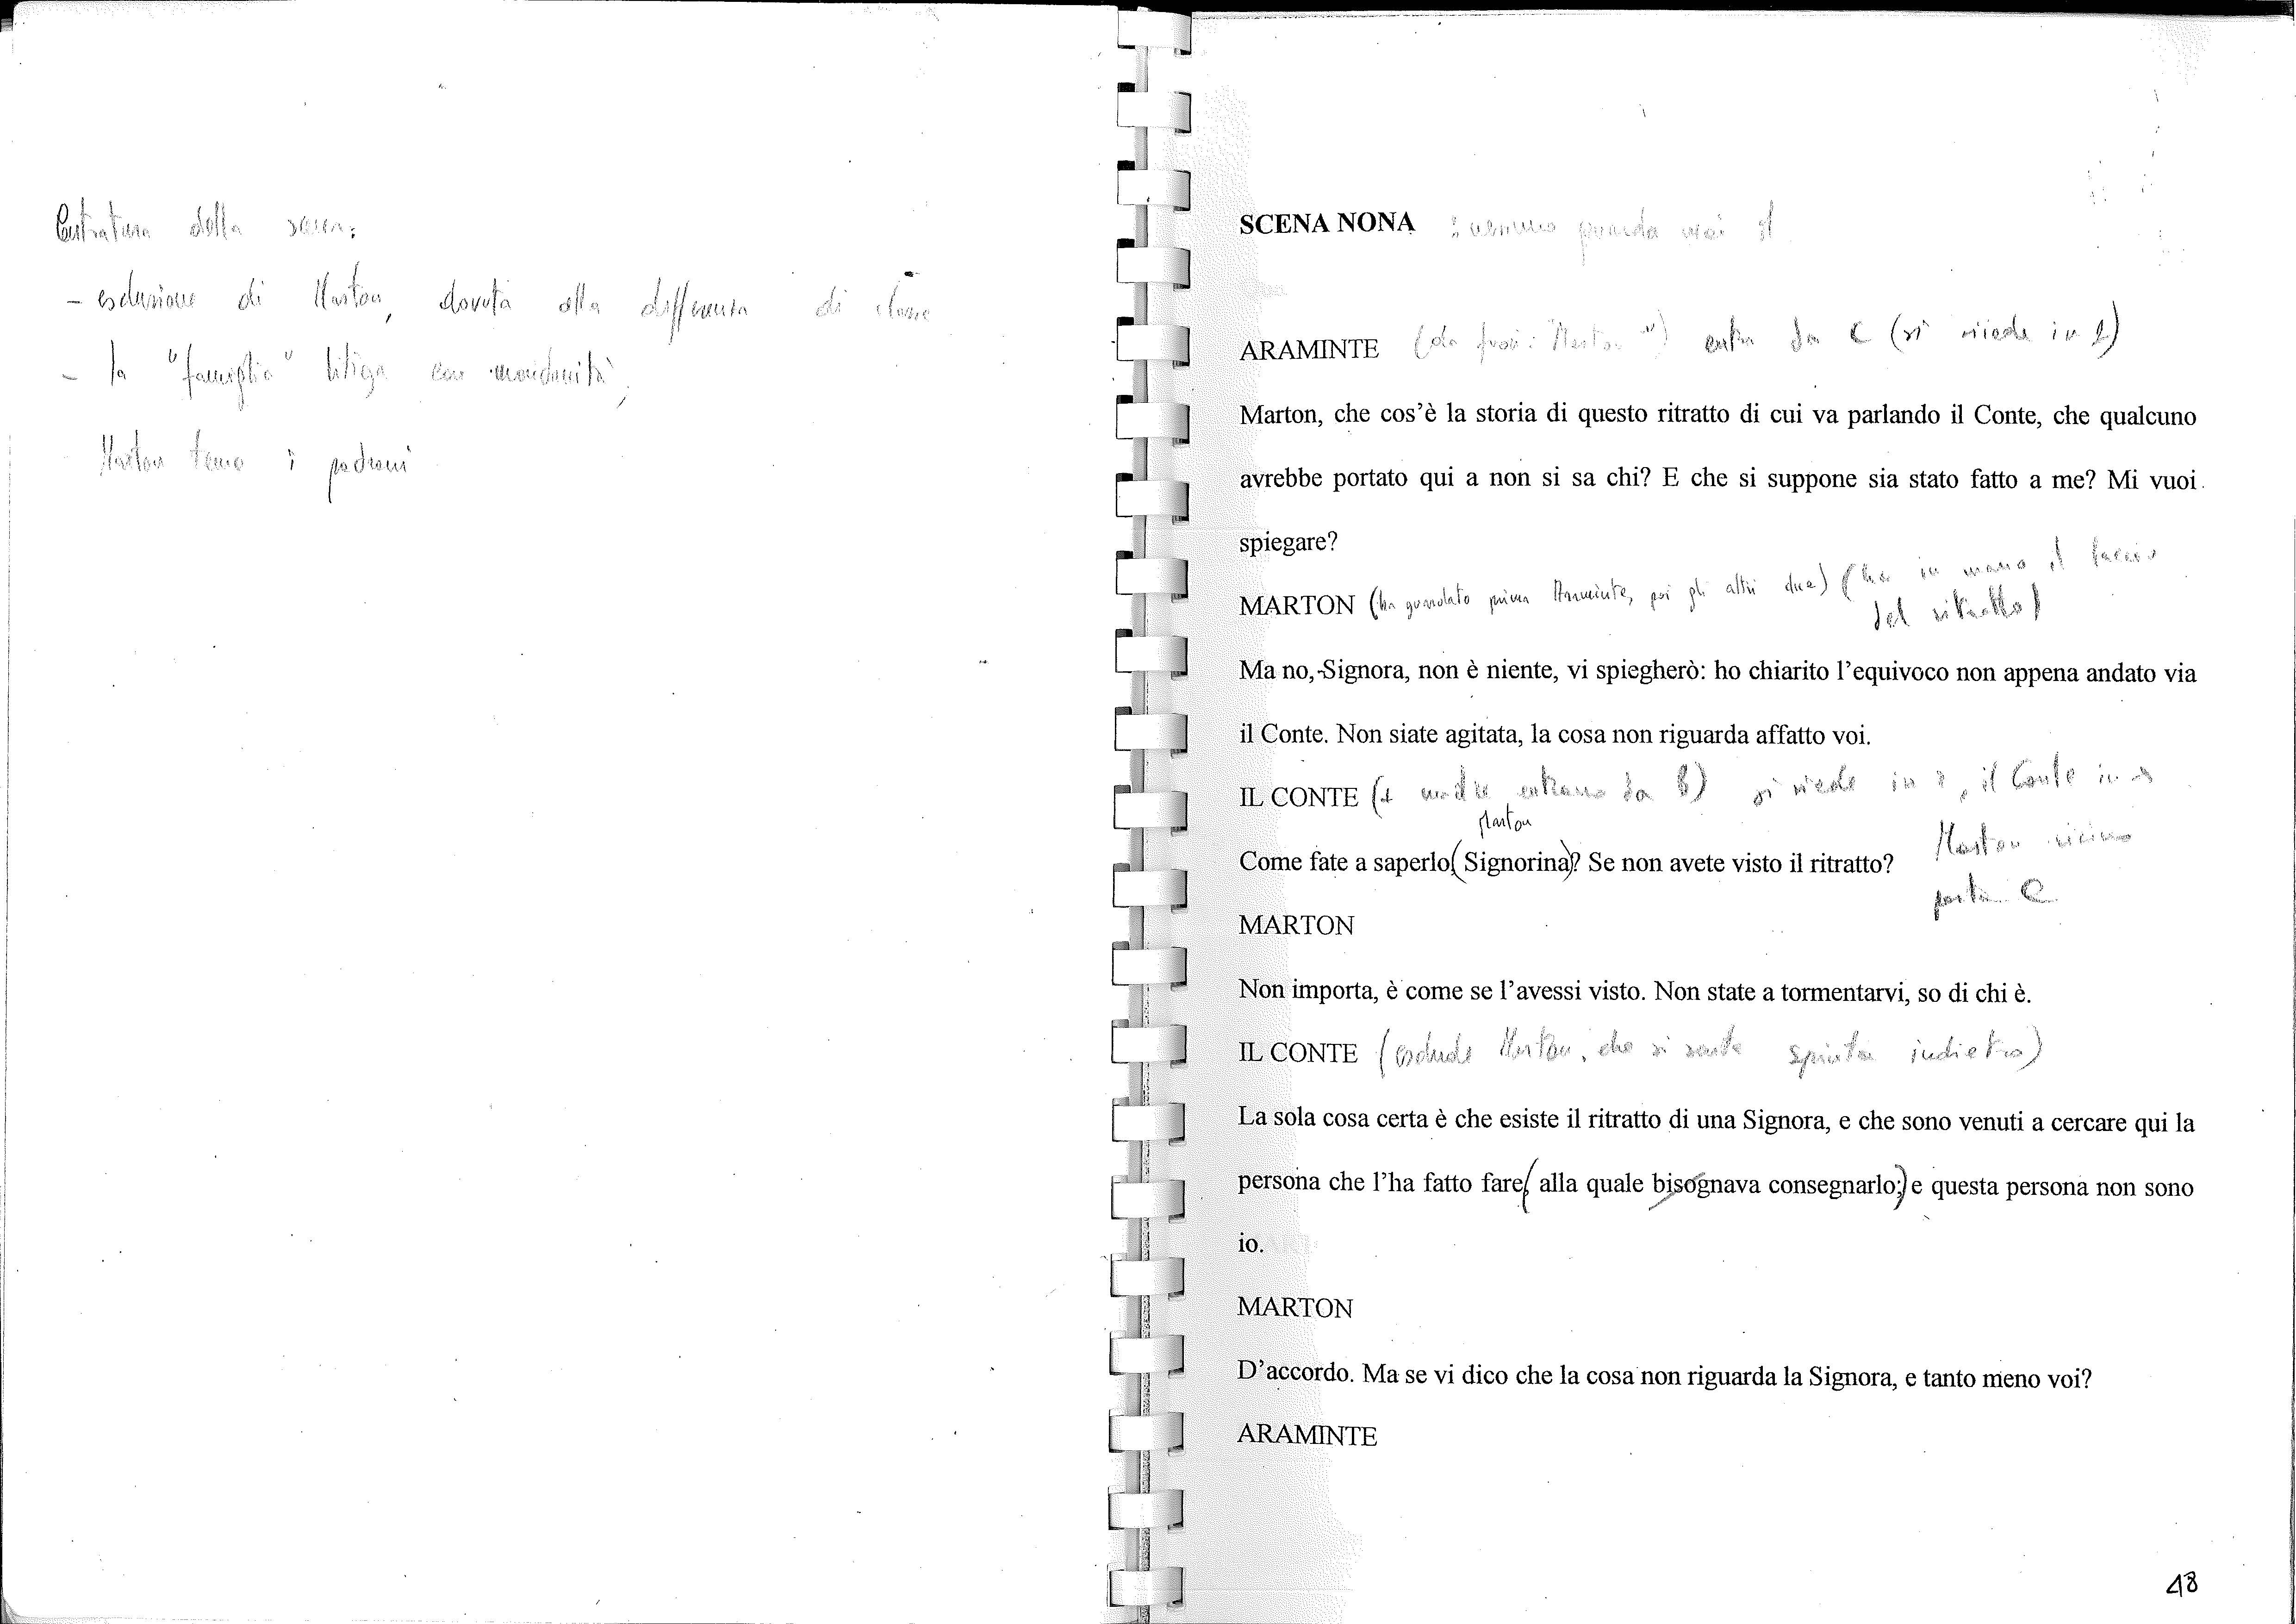 della scena:
- esclusione di Marton, dovuta alla differenza di classe
- la "famiglia" litiga con mondanità,
Marton teme i padroni
SCENA NONA : nessuno guarda mai il
ARAMINTE (da fuori: "Marton") entra da C (si siede in 2)
Marton, che cos'è la storia di questo ritratto di cui va parlando il Conte, che qualcuno
avrebbe portato qui a non si sa chi? E che si suppone sia stato fatto a me? Mi vuoi
spiegare?
MARTON (ha guardato prima Araminte, poi gli altri due) (ha in mano il
del ritratto)
Ma no, Signora, non è niente, vi spiegherò: ho chiarito l'equivoco non appena andato via
il Conte. Non siate agitata, la cosa non riguarda affatto voi.
IL CONTE (+ madre entrano da B) si siede in , il Conte in
Marton
Come fate a saperlo( Signorina)? Se non avete visto il ritratto?
Marton vicino
porta C
MARTON
Non importa, è come se l'avessi visto. Non state a tormentarvi, so di chi è.
IL CONTE (esclude Marton, che si sente spinta indietro)
La sola cosa certa è che esiste il ritratto di una Signora, e che sono venuti a cercare qui la
persona che l'ha fatto fare( alla quale bisognava consegnarlo;) e questa persona non sono
io.
MARTON
D'accordo. Ma se vi dico che la cosa non riguarda la Signora, e tanto meno voi?
ARAMINTE
48